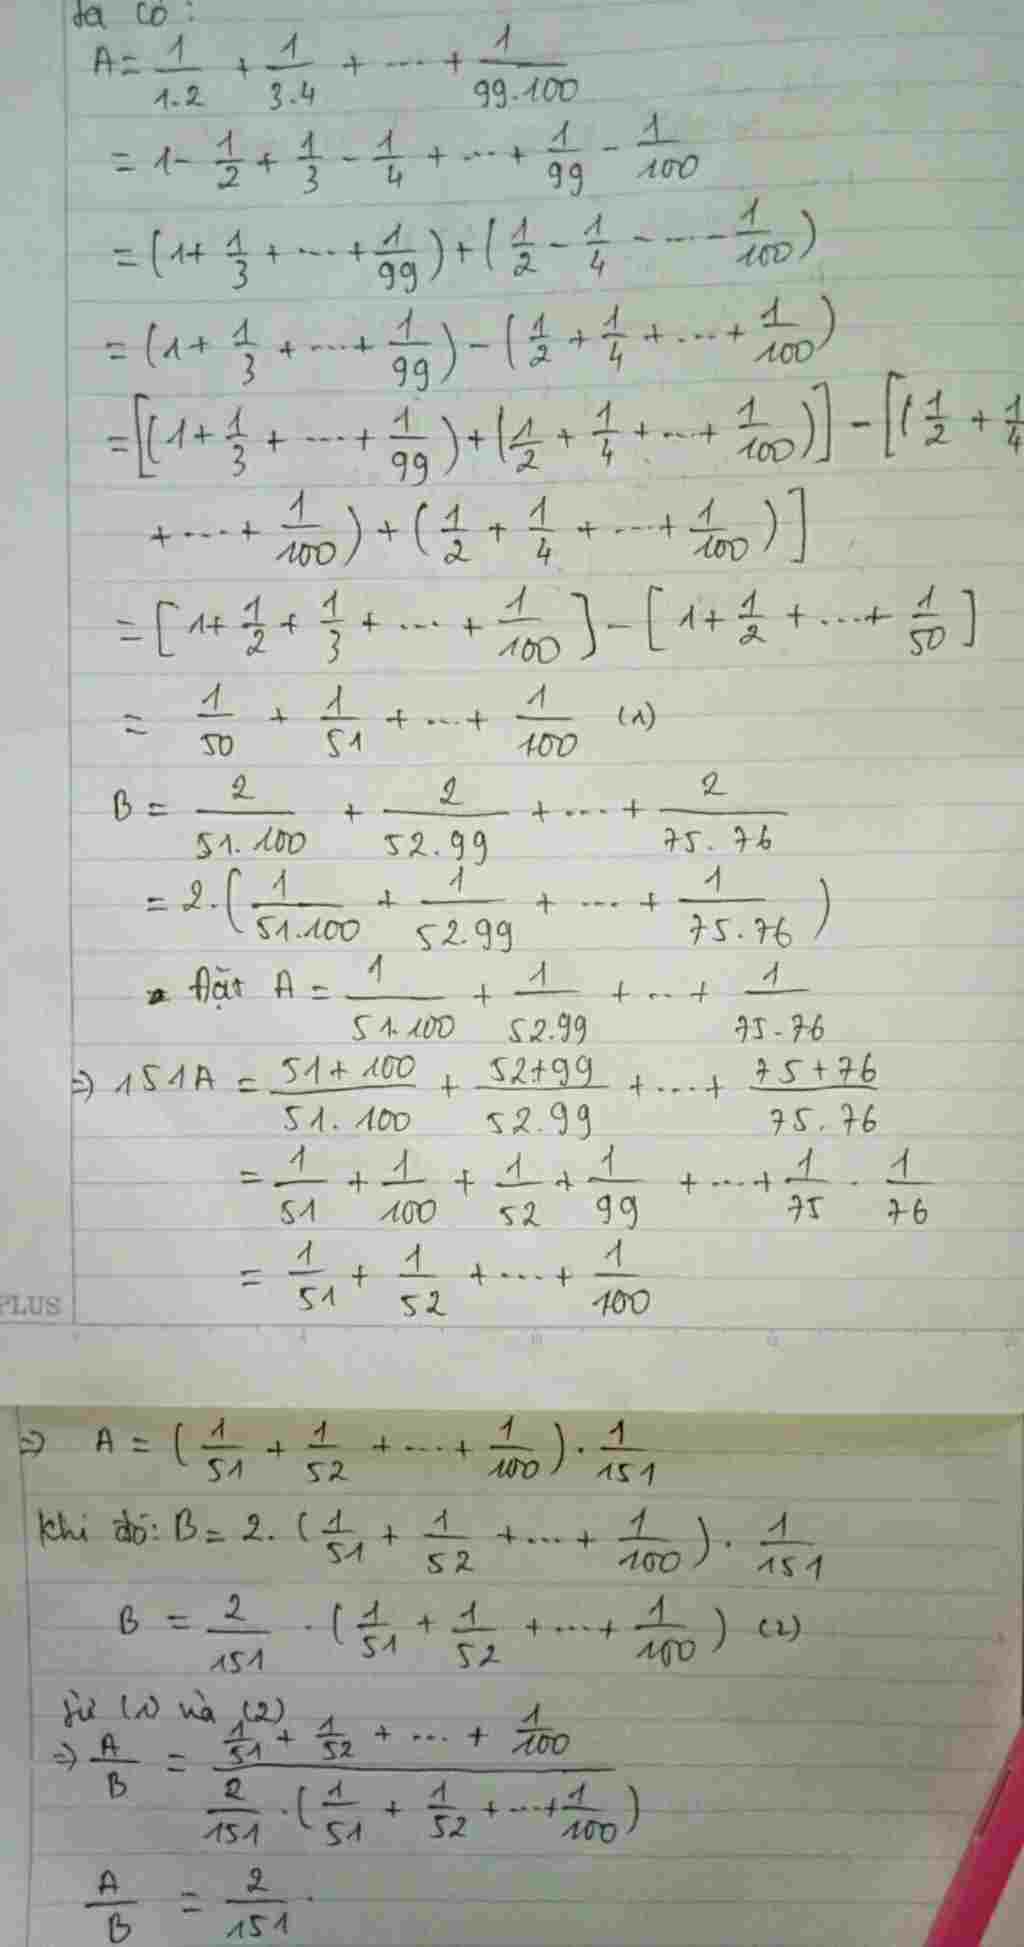 Ta có:
A = 1/1.2 + 1/3.4 + ... + 1/99.100
= 1 - 1/2 + 1/3 - 1/4 + ... + 1/99 - 1/100
= (1 + 1/3 + ... + 1/99) + (1/2 - 1/4 - ... - 1/100)
= (1 + 1/3 + ... + 1/99) - (1/2 + 1/4 + ... + 1/100)
= [(1 + 1/3 + ... + 1/99) + (1/2 + 1/4 + ... + 1/100)] - [(1/2 + 1/4
+ ... + 1/100) + (1/2 + 1/4 + ... + 1/100)]
= [1 + 1/2 + 1/3 + ... + 1/100] - [1 + 1/2 + ... + 1/50]
= 1/50 + 1/51 + ... + 1/100 (1)
B = 2/51.100 + 2/52.99 + ... + 2/75.76
= 2.(1/51.100 + 1/52.99 + ... + 1/75.76)
Đặt A = 1/51.100 + 1/52.99 + ... + 1/75.76
=> 151A = 51+100/51.100 + 52+99/52.99 + ... + 75+76/75.76
= 1/51 + 1/100 + 1/52 + 1/99 + ... + 1/75 . 1/76
= 1/51 + 1/52 + ... + 1/100
PLUS
=> A = (1/51 + 1/52 + ... + 1/100) . 1/151
Khi đó: B = 2. (1/51 + 1/52 + ... + 1/100) . 1/151
B = 2/151 . (1/51 + 1/52 + ... + 1/100) (2)
Từ (1) và (2)
=> A/B = 1/51 + 1/52 + ... + 1/100 / 2/151 . (1/51 + 1/52 + ... + 1/100)
A/B = 2/151 .